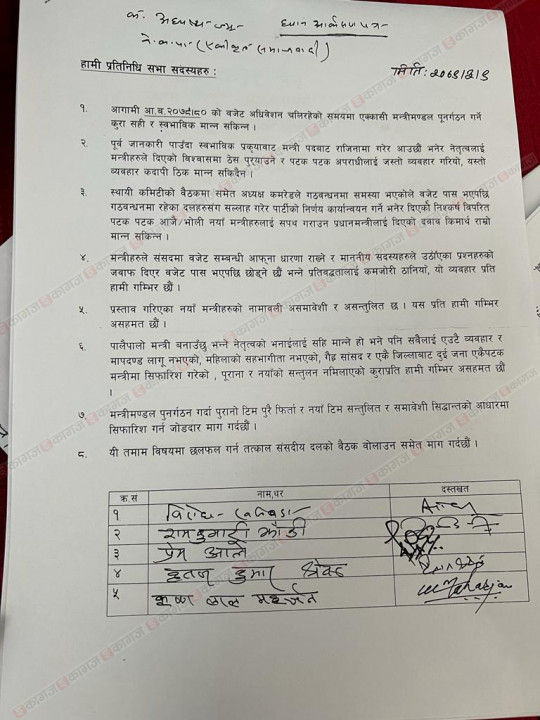 क. अध्यक्ष-ज्यू
ध्यान आकर्षण पत्र
ने.क.पा (एकीकृत समाजवादी)
हामी प्रतिनिधि सभा सदस्यहरु :
मिति:
१. आगामी आ.व.२०७९।८० को बजेट अधिवेशन चलिरहेको समयमा एक्कासी मन्त्रीमण्डल पूनर्गठन गर्ने
कुरा सही र स्वभाविक मान्न सकिन्न ।
२. पूर्व जानकारी पाउँदा स्वभाविक प्रकृयाबाट मन्त्री पदबाट राजिनामा गरेर आउछौं भनेर नेतृत्वलाई
मन्त्रीहरुले दिएको विश्वासमा ठेस पुरयाउने र पटक पटक अपराधीलाई जस्तो व्यवहार गरियो, यस्तो
व्यवहार कदापी ठिक मान्न सकिदैन ।
३. स्थायी कमिटीको बैठकमा समेत अध्यक्ष कमरेडले गठवन्धनमा समस्या भएकोले बजेट पास भएपछि
गठवन्धनमा रहेका दलहरुसंग सल्लाह गरेर पार्टीको निर्णय कार्यान्वयन गर्ने भनेर दिएको निश्कर्ष विपरित
पटक पटक आजै/भोली नयाँ मन्त्रीहरुलाई सपथ गराउन प्रधानमन्त्रीलाई दिएको दवाव किमार्थ राम्रो
मान्न सकिन्न ।
४. मन्त्रीहरुले संसदमा बजेट सम्वन्धी आफ्ना धारणा राख्ने र माननीय सदस्यहरुले उठाएका प्रश्नहरुको
जवाफ दिएर बजेट पास भएपछि छोड्ने छौं भन्ने प्रतिवद्धतालाई कमजोरी ठानियो, यो व्यवहार प्रति
हामी गम्भिर छौं ।
५. प्रस्ताव गरिएका नयाँ मन्त्रीहरुको नामावली असमावेशी र असन्तुलित छ । यस प्रति हामी गम्भिर
असहमत छौं ।
६. पालैपालो मन्त्री बनाउँछु भन्ने नेतृत्वको भनाईलाई सहि मान्ने हो भने पनि सवैलाई एउटै व्यवहार र
मापदण्ड लागू नभएको, महिलाको सहभागीता नभएको, गैह्र सांसद र एकै जिल्लाबाट दुई जना एकैपटक
मन्त्रीमा सिफारिश गरेको , पूराना र नयाँको सन्तुलन नमिलाएको कुराप्रति हामी गम्भिर असहमत छौं
।
७. मन्त्रीमण्डल पुनर्गठन गर्दा पुरानो टिम पुरै फिर्ता र नयाँ टिम सन्तुलित र समावेशी सिद्धान्तको आधारमा
सिफारिश गर्न जोडदार माग गर्दछौं ।
८. यी तमाम विषयमा छलफल गर्न तत्काल संसदीय दलको बैठक बोलाउन समेत माग गर्दछौं ।
क्र.सं नाम,थर दस्तखत
१
२ रामकुमारी झाँक्री
३ प्रेम आले
४ कुमार श्रेष्ठ
५ कृष्ण लाल महर्जन
कागज